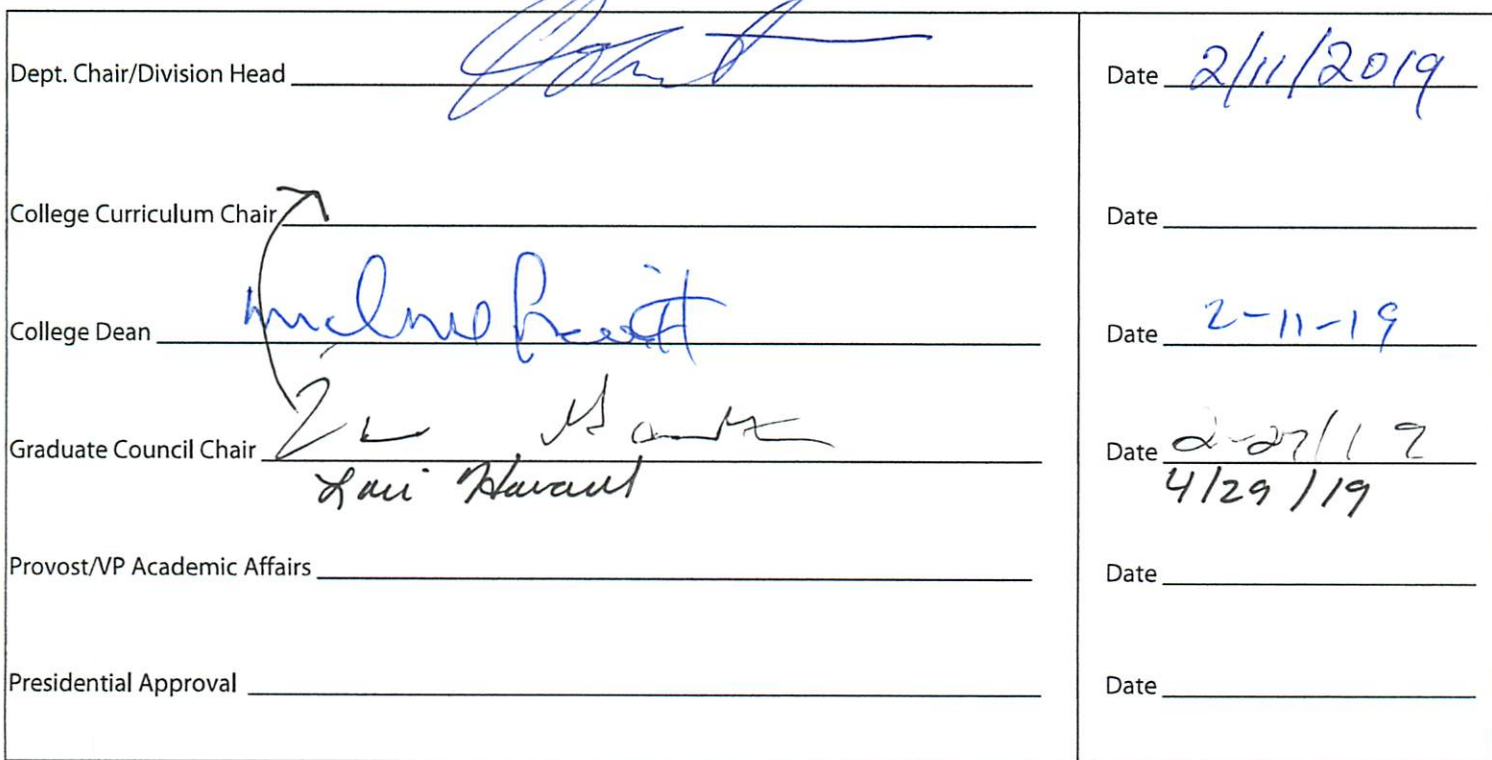 Dept. Chair/Division Head
Date 2/11/2019
College Curriculum Chair
Date
College Dean
Date 2-11-19
Graduate Council Chair
Date 2-27/19
Lori
4/29/19
Provost/VP Academic Affairs
Date
Presidential Approval
Date